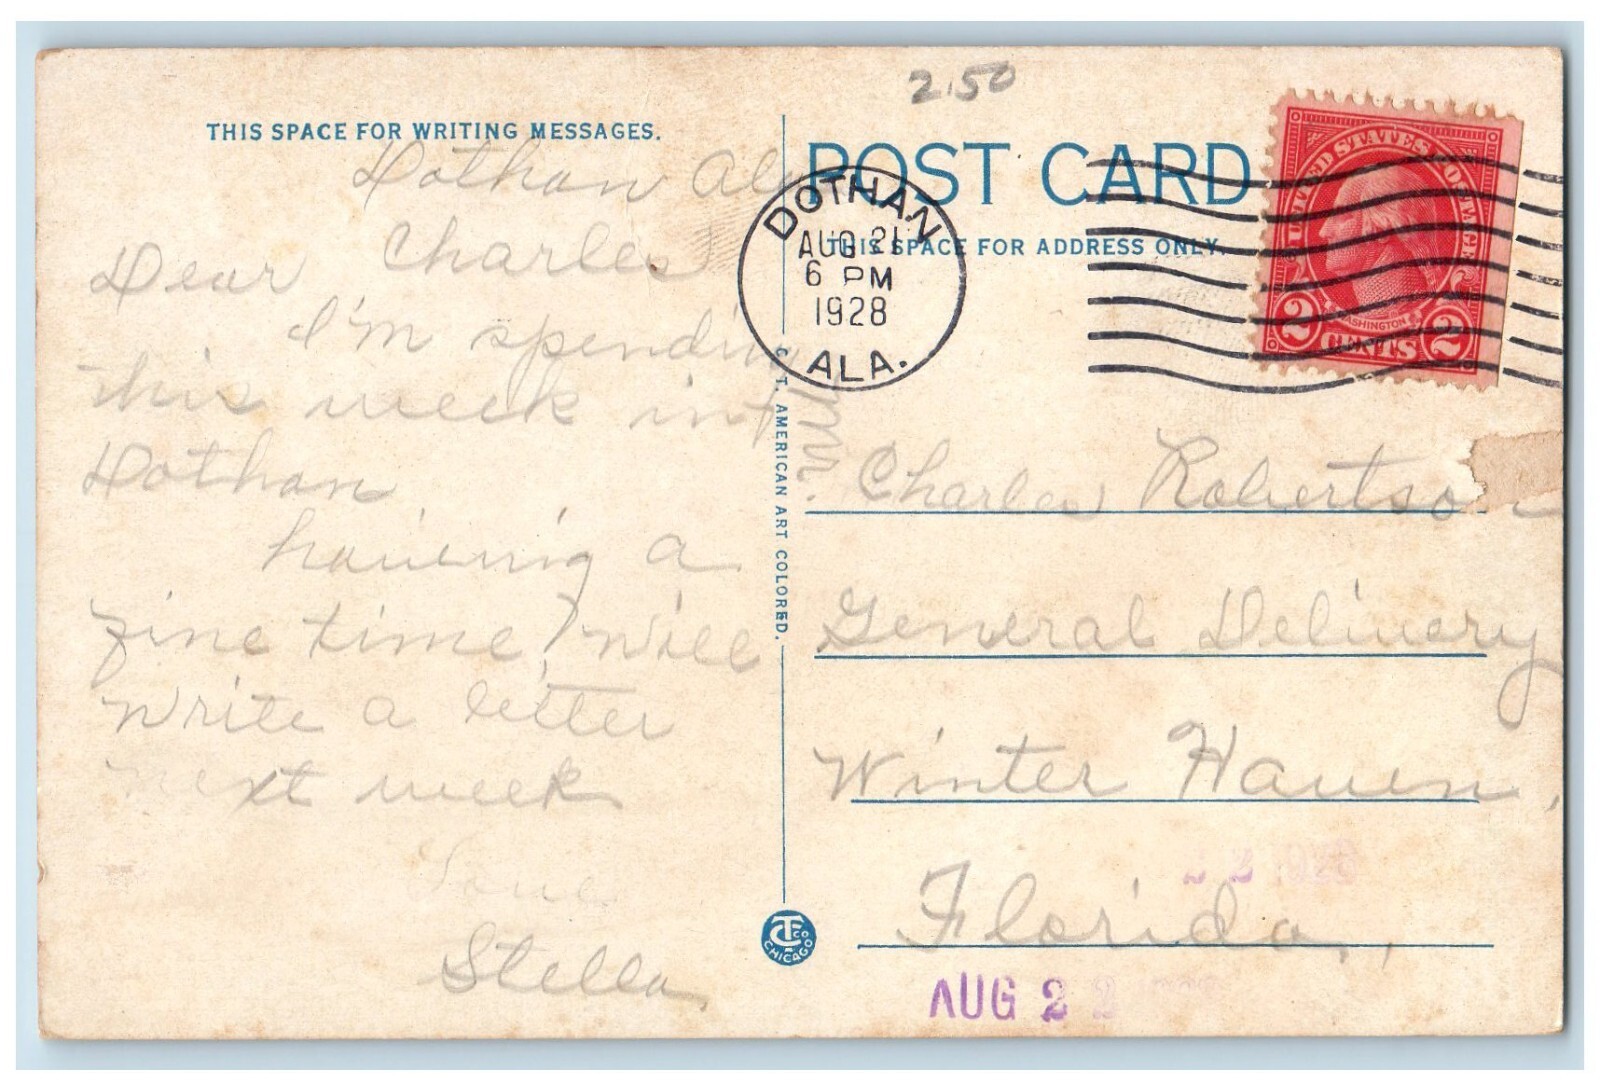 2.50
THIS SPACE FOR WRITING MESSAGES.
Dothan Ala
Dear Charles
I'm spending
this week in
Dothan
haveing a
fine time, Will
write a letter
next week
Love
Stella
POST CARD
THIS SPACE FOR ADDRESS ONLY.
DOTHAN
AUG 21
6 PM
1928
ALA.
UNITED STATES POSTAGE
WASHINGTON
2 CENTS 2
C. T. AMERICAN ART COLORED.
Mr. Charles Robertson
General Delivery
Winter Haven,
Florida,
AUG 22
CTCO
CHICAGO